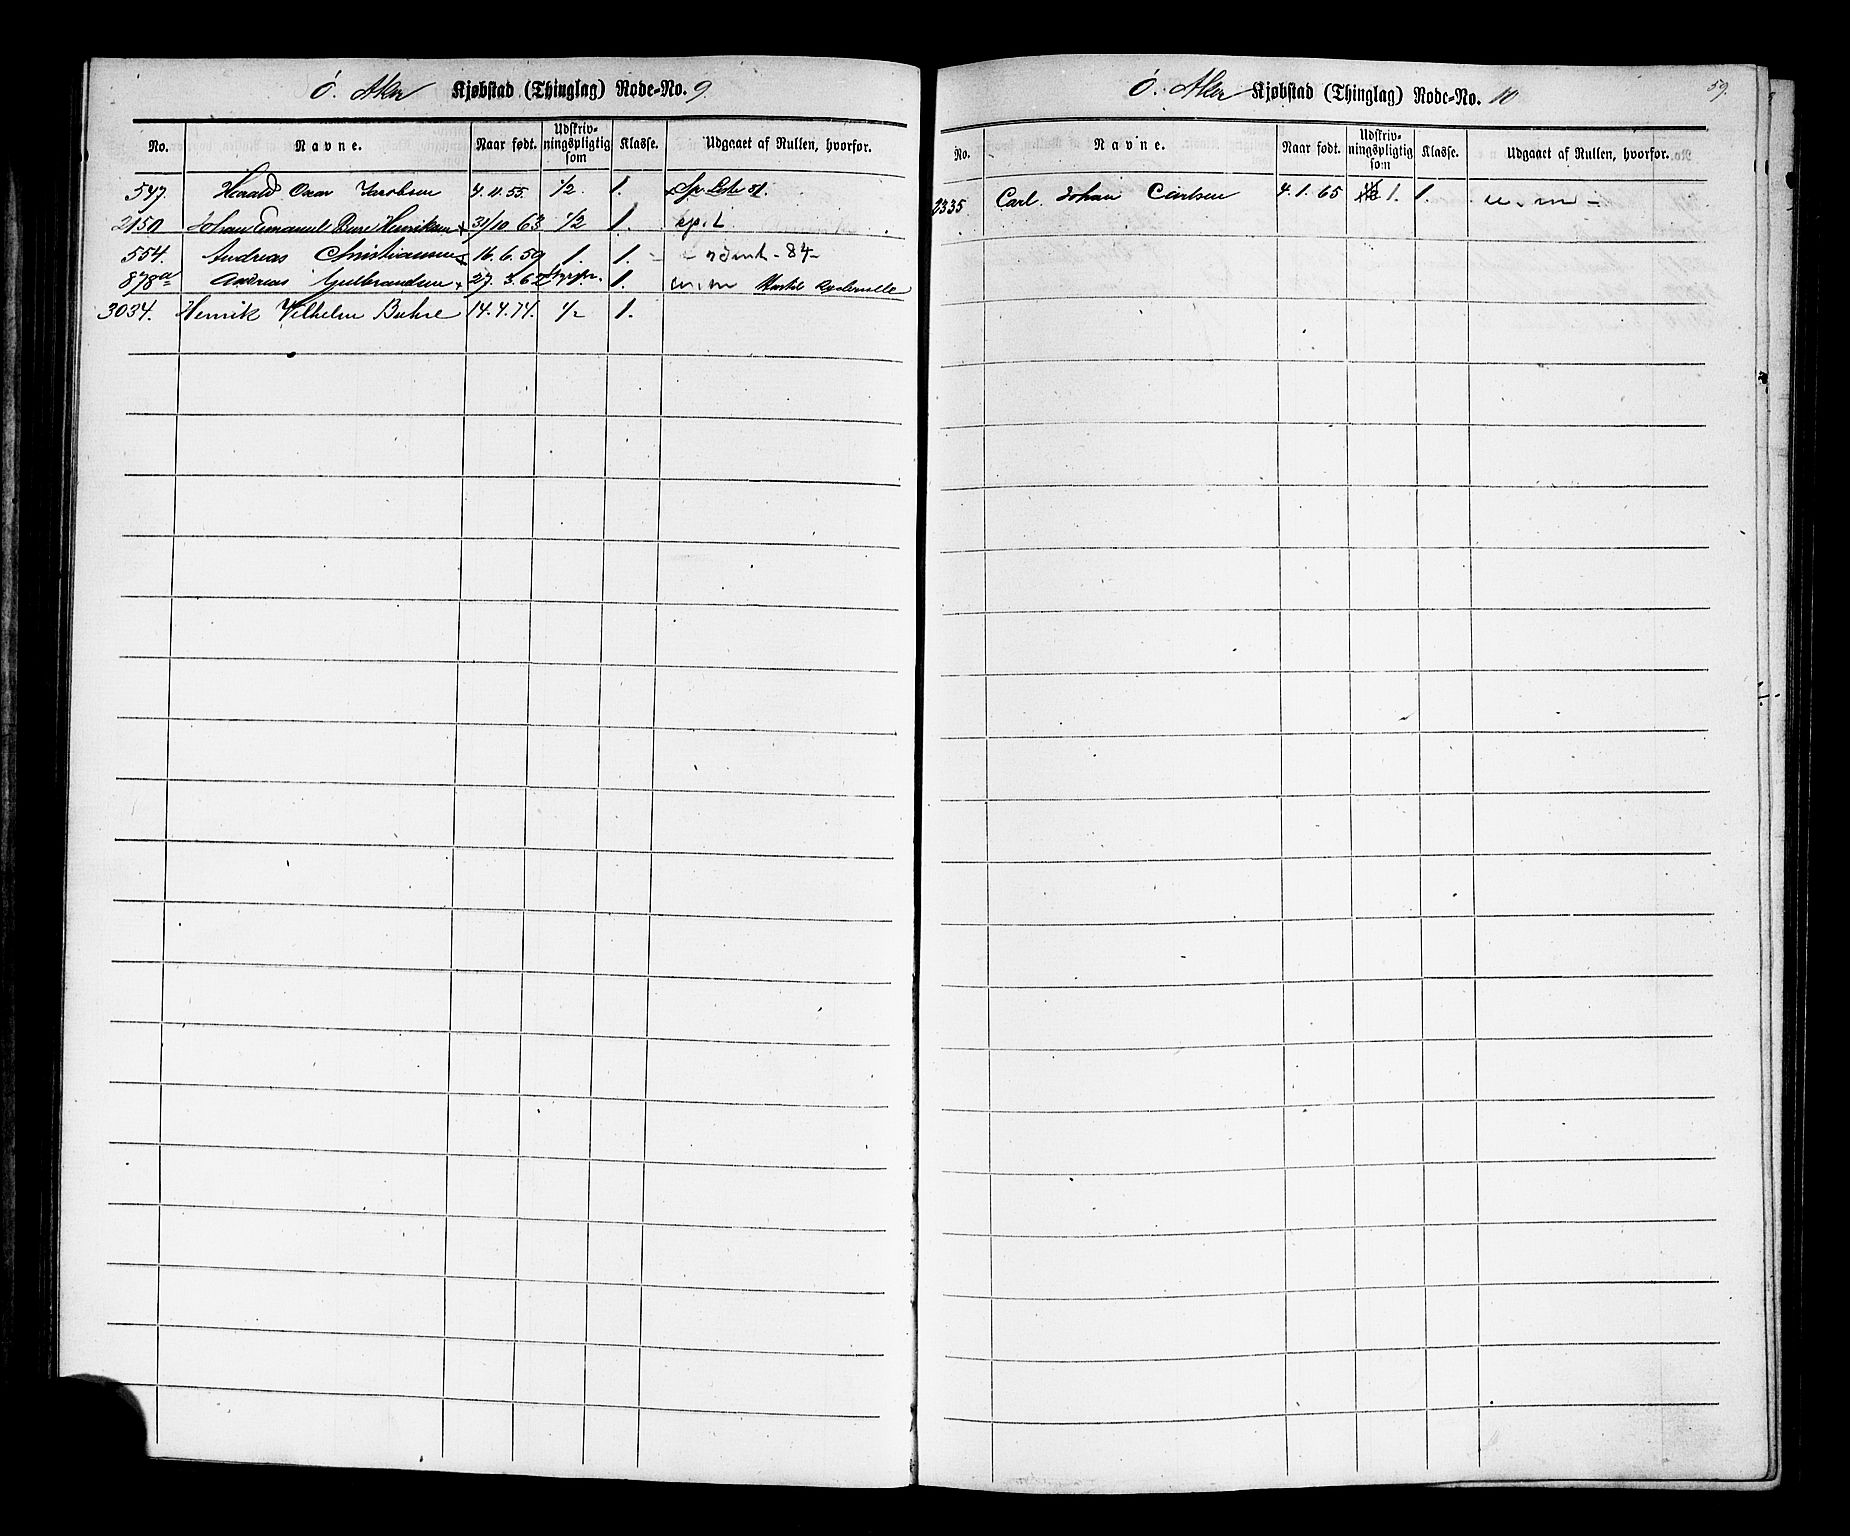 Ö. Aker Kjøbstad (Thinglag) Rode-No. 9
No. Navne. Naar født. Udskriv-ningspligtig som Klasse. Udgaaet af Rullen, hvorfor.
547. Harald Oscar Jacobsen 4.11.55. 1/2. 1. Sp. Liste
2150 Johan Emanuel Henriksen + 31/10 63 1/2 1. sp. L
554. Andreas Christiansen + 16.6.59 1. 1. 84
878a Andreas Gulbrandsen + 27.3.62 1. u. m Ryderulle
3034. Henrik Vilhelm Buhre 14.4.74. 1/2 1.
Ö. Aker Kjøbstad (Thinglag) Rode-No. 10
59.
No. Navne. Naar født. Udskriv-ningspligtig som Klasse. Udgaaet af Rullen, hvorfor.
2335 Carl Johan Carlsen 4.1.65 1. 1. u. m -